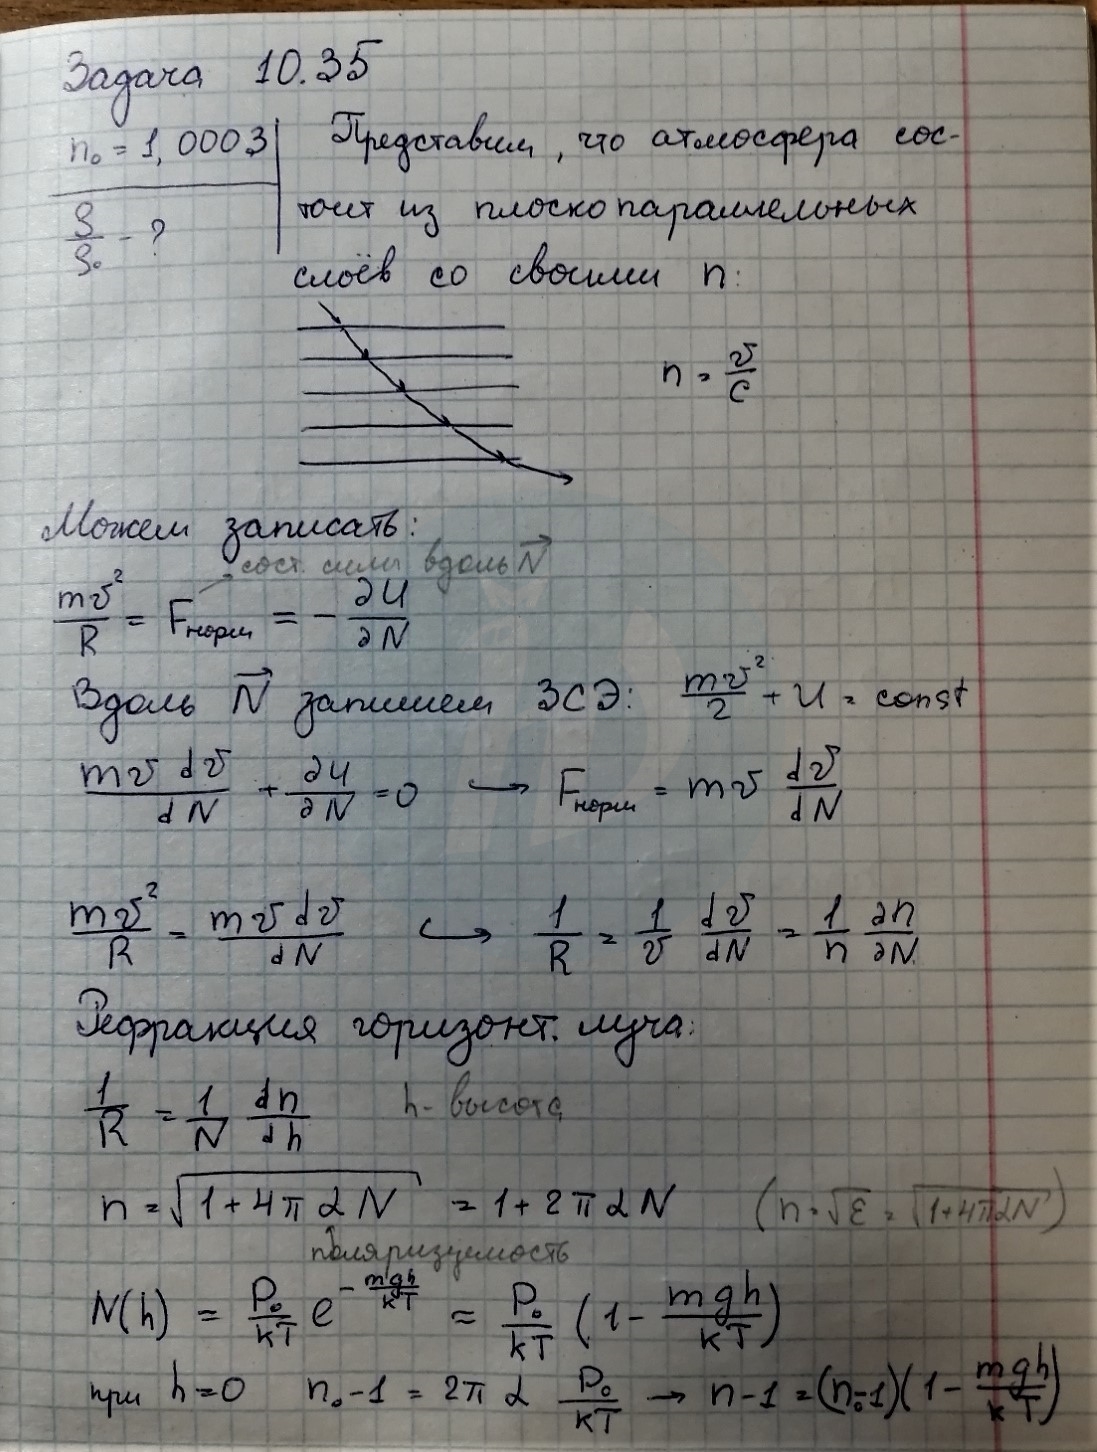 Задача 10.35
n₀ = 1,0003 Представим, что атмосфера сос-
ρ/ρ₀ - ? тоит из плоскопараллельных
слоёв со своими n:
n = v/c
Можем записать:
сост. силы вдоль N⃗
mv²/R = Fнорм = - ∂U/∂N
Вдоль N⃗ запишем ЗСЭ: mv²/2 + U = const
mv dv/dN + ∂U/∂N = 0 → Fнорм = mv dv/dN
mv²/R = mv dv/dN ↪ 1/R = 1/v dv/dN = 1/n ∂n/∂N
Рефракция горизонт. луча:
1/R = 1/N dn/dh h - высота
n = √(1+4παN) = 1+2παN (n = √ε = √(1+4παN))
поляризуемость
N(h) = P₀/kT e^(-mgh/kT) ≈ P₀/kT (1 - mgh/kT)
при h=0 n₀-1 = 2πα P₀/kT → n-1 = (n₀-1)(1 - mgh/kT)